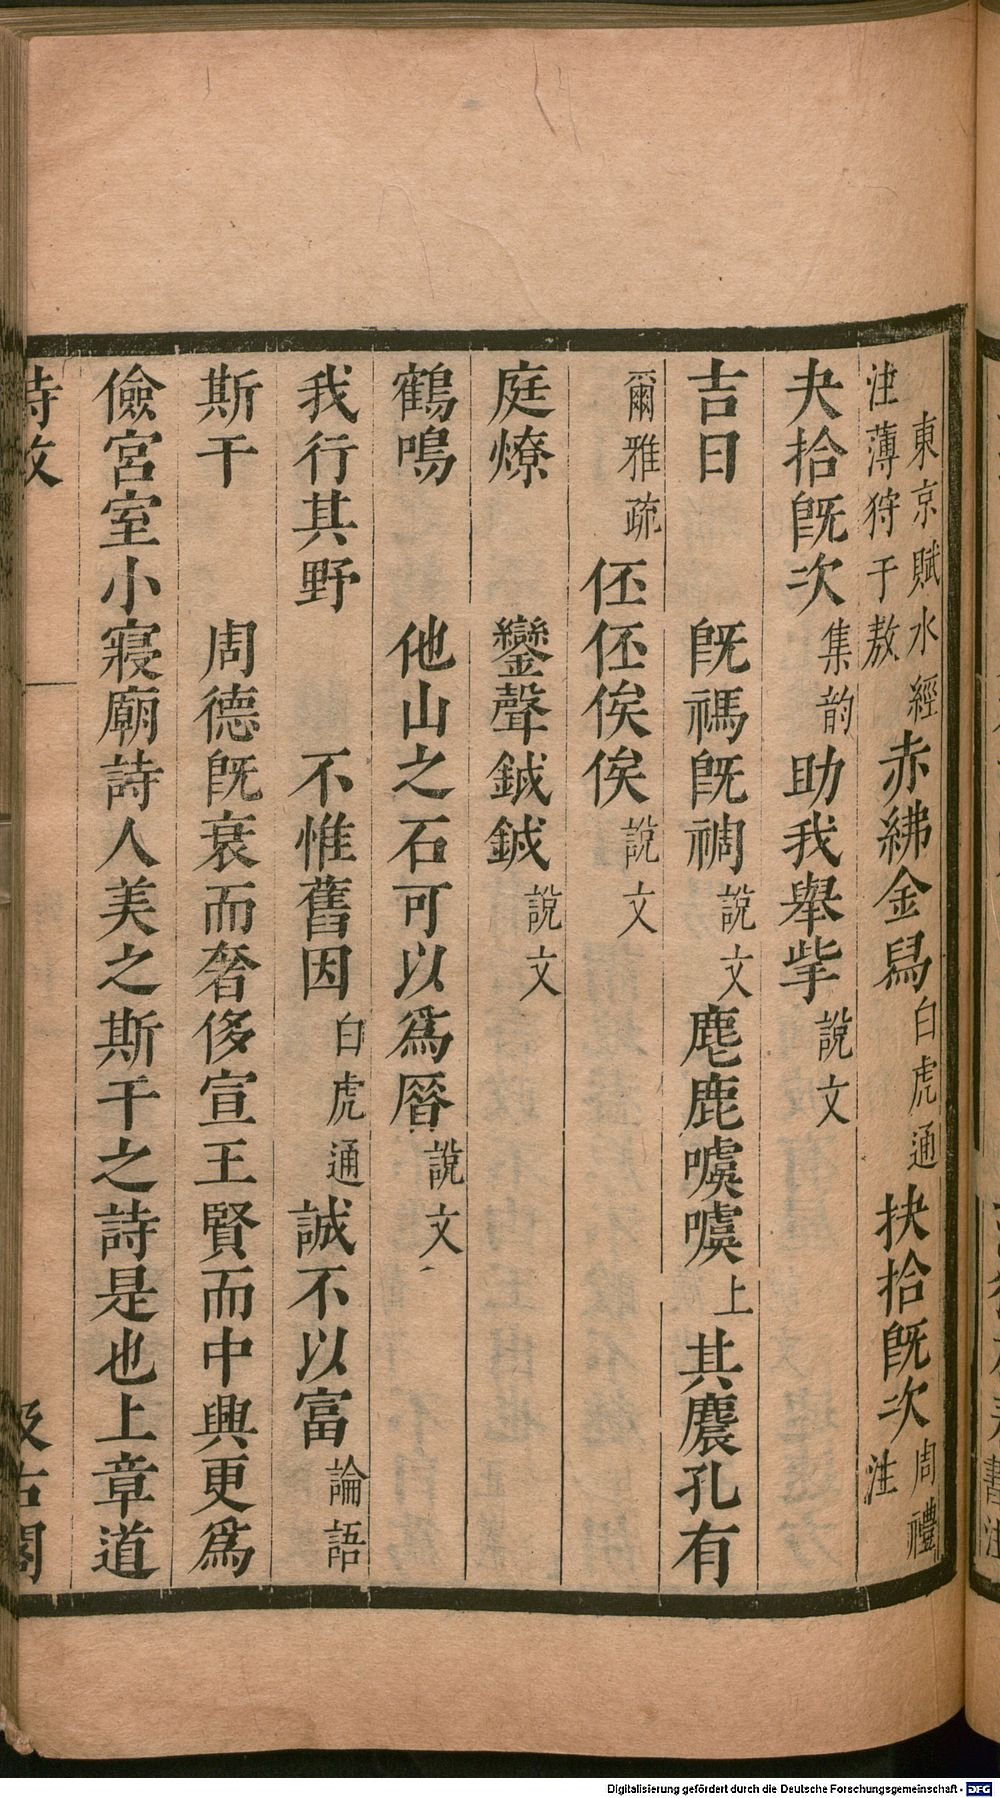 東京賦水經注薄狩于敖赤紼金舃白虎通抉拾旣次周禮注
夬拾旣次集韵助我舉㧘說文
吉日 旣禡旣禂說文麀鹿噳噳上其麎孔有
爾雅疏伾伾俟俟說文
庭燎 鑾聲鉞鉞說文
鶴鳴 他山之石可以爲厝說文
我行其野 不惟舊因白虎通誠不以富論語
斯干 周德旣衰而奢侈宣王賢而中興更爲
儉宮室小寢廟詩人美之斯干之詩是也上章道
詩攷 汲古閣
Digitalisierung gefördert durch die Deutsche Forschungsgemeinschaft - DFG